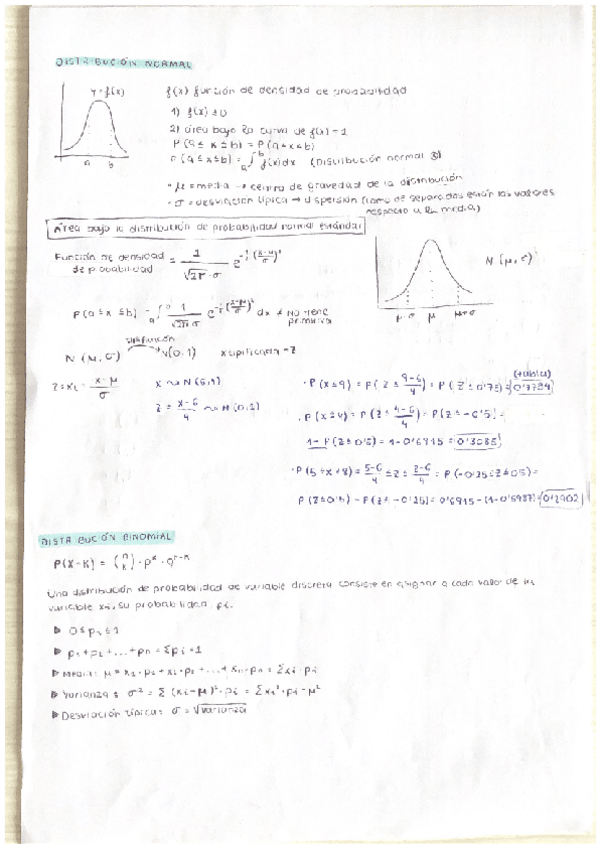 DISTRIBUCIÓN NORMAL
y = f(x)
a b
f(x) función de densidad de probabilidad
1) f(x) ≥ 0
2) área bajo la curva de f(x) = 1
P(a ≤ x ≤ b) = P(a ≤ x ≤ b)
P(a ≤ x ≤ b) = ∫ₐᵇ f(x) dx (Distribución normal
· μ = media → centro de gravedad de la distribución
· σ = desviación típica → dispersión (como de separados están los valores
respecto a la media)
Área bajo la distribución de probabilidad normal estándar
Función de densidad de probabilidad = 1/(√2π · σ) e^(-1/2 ((x-μ)/σ)²)
N(μ, σ)
μ-σ μ μ+σ
P(a ≤ x ≤ b) = 1/(√2π σ) e^(-1/2 ((x-μ)/σ)²) dx ≠ No tiene primitiva
N(μ, σ) → N(0,1) x tipificada = Z
Z = xᵢ = (x-μ)/σ
x ~ N(6,4)
Z = (x-6)/4 ~ N(0,1)
(tabla)
· P(x ≤ 9) = P(Z ≤ (9-6)/4) = P(Z ≤ 0'75) = 0'7734
· P(x ≤ 4) = P(Z ≤ (4-6)/4) = P(Z ≤ -0'5) =
1 - P(Z ≤ 0'5) = 1 - 0'6915 = 0'3085
· P(5 < x < 8) = (5-6)/4 ≤ Z ≤ (8-6)/4 = P(-0'25 ≤ Z ≤ 0'5) =
P(Z ≤ 0'5) - P(Z ≤ -0'25) = 0'6915 - (1-0'5987) = 0'2902
DISTRIBUCIÓN BINOMIAL
P(X=K) = (n k) · pᵏ · qⁿ⁻ᵏ
Una distribución de probabilidad de variable discreta consiste en asignar a cada valor de la
variable xᵢ, su probabilidad pᵢ.
▷ 0 ≤ pᵢ ≤ 1
▷ p₁ + p₂ + ... + pn = Σpᵢ = 1
▷ Media: μ = x₁ · p₁ + x₂ · p₂ + ... + xn · pn = Σxᵢ · pᵢ
▷ Varianza: σ² = Σ (xᵢ - μ)² · pᵢ = Σxᵢ² · pᵢ - μ²
▷ Desviación típica: σ = √varianza